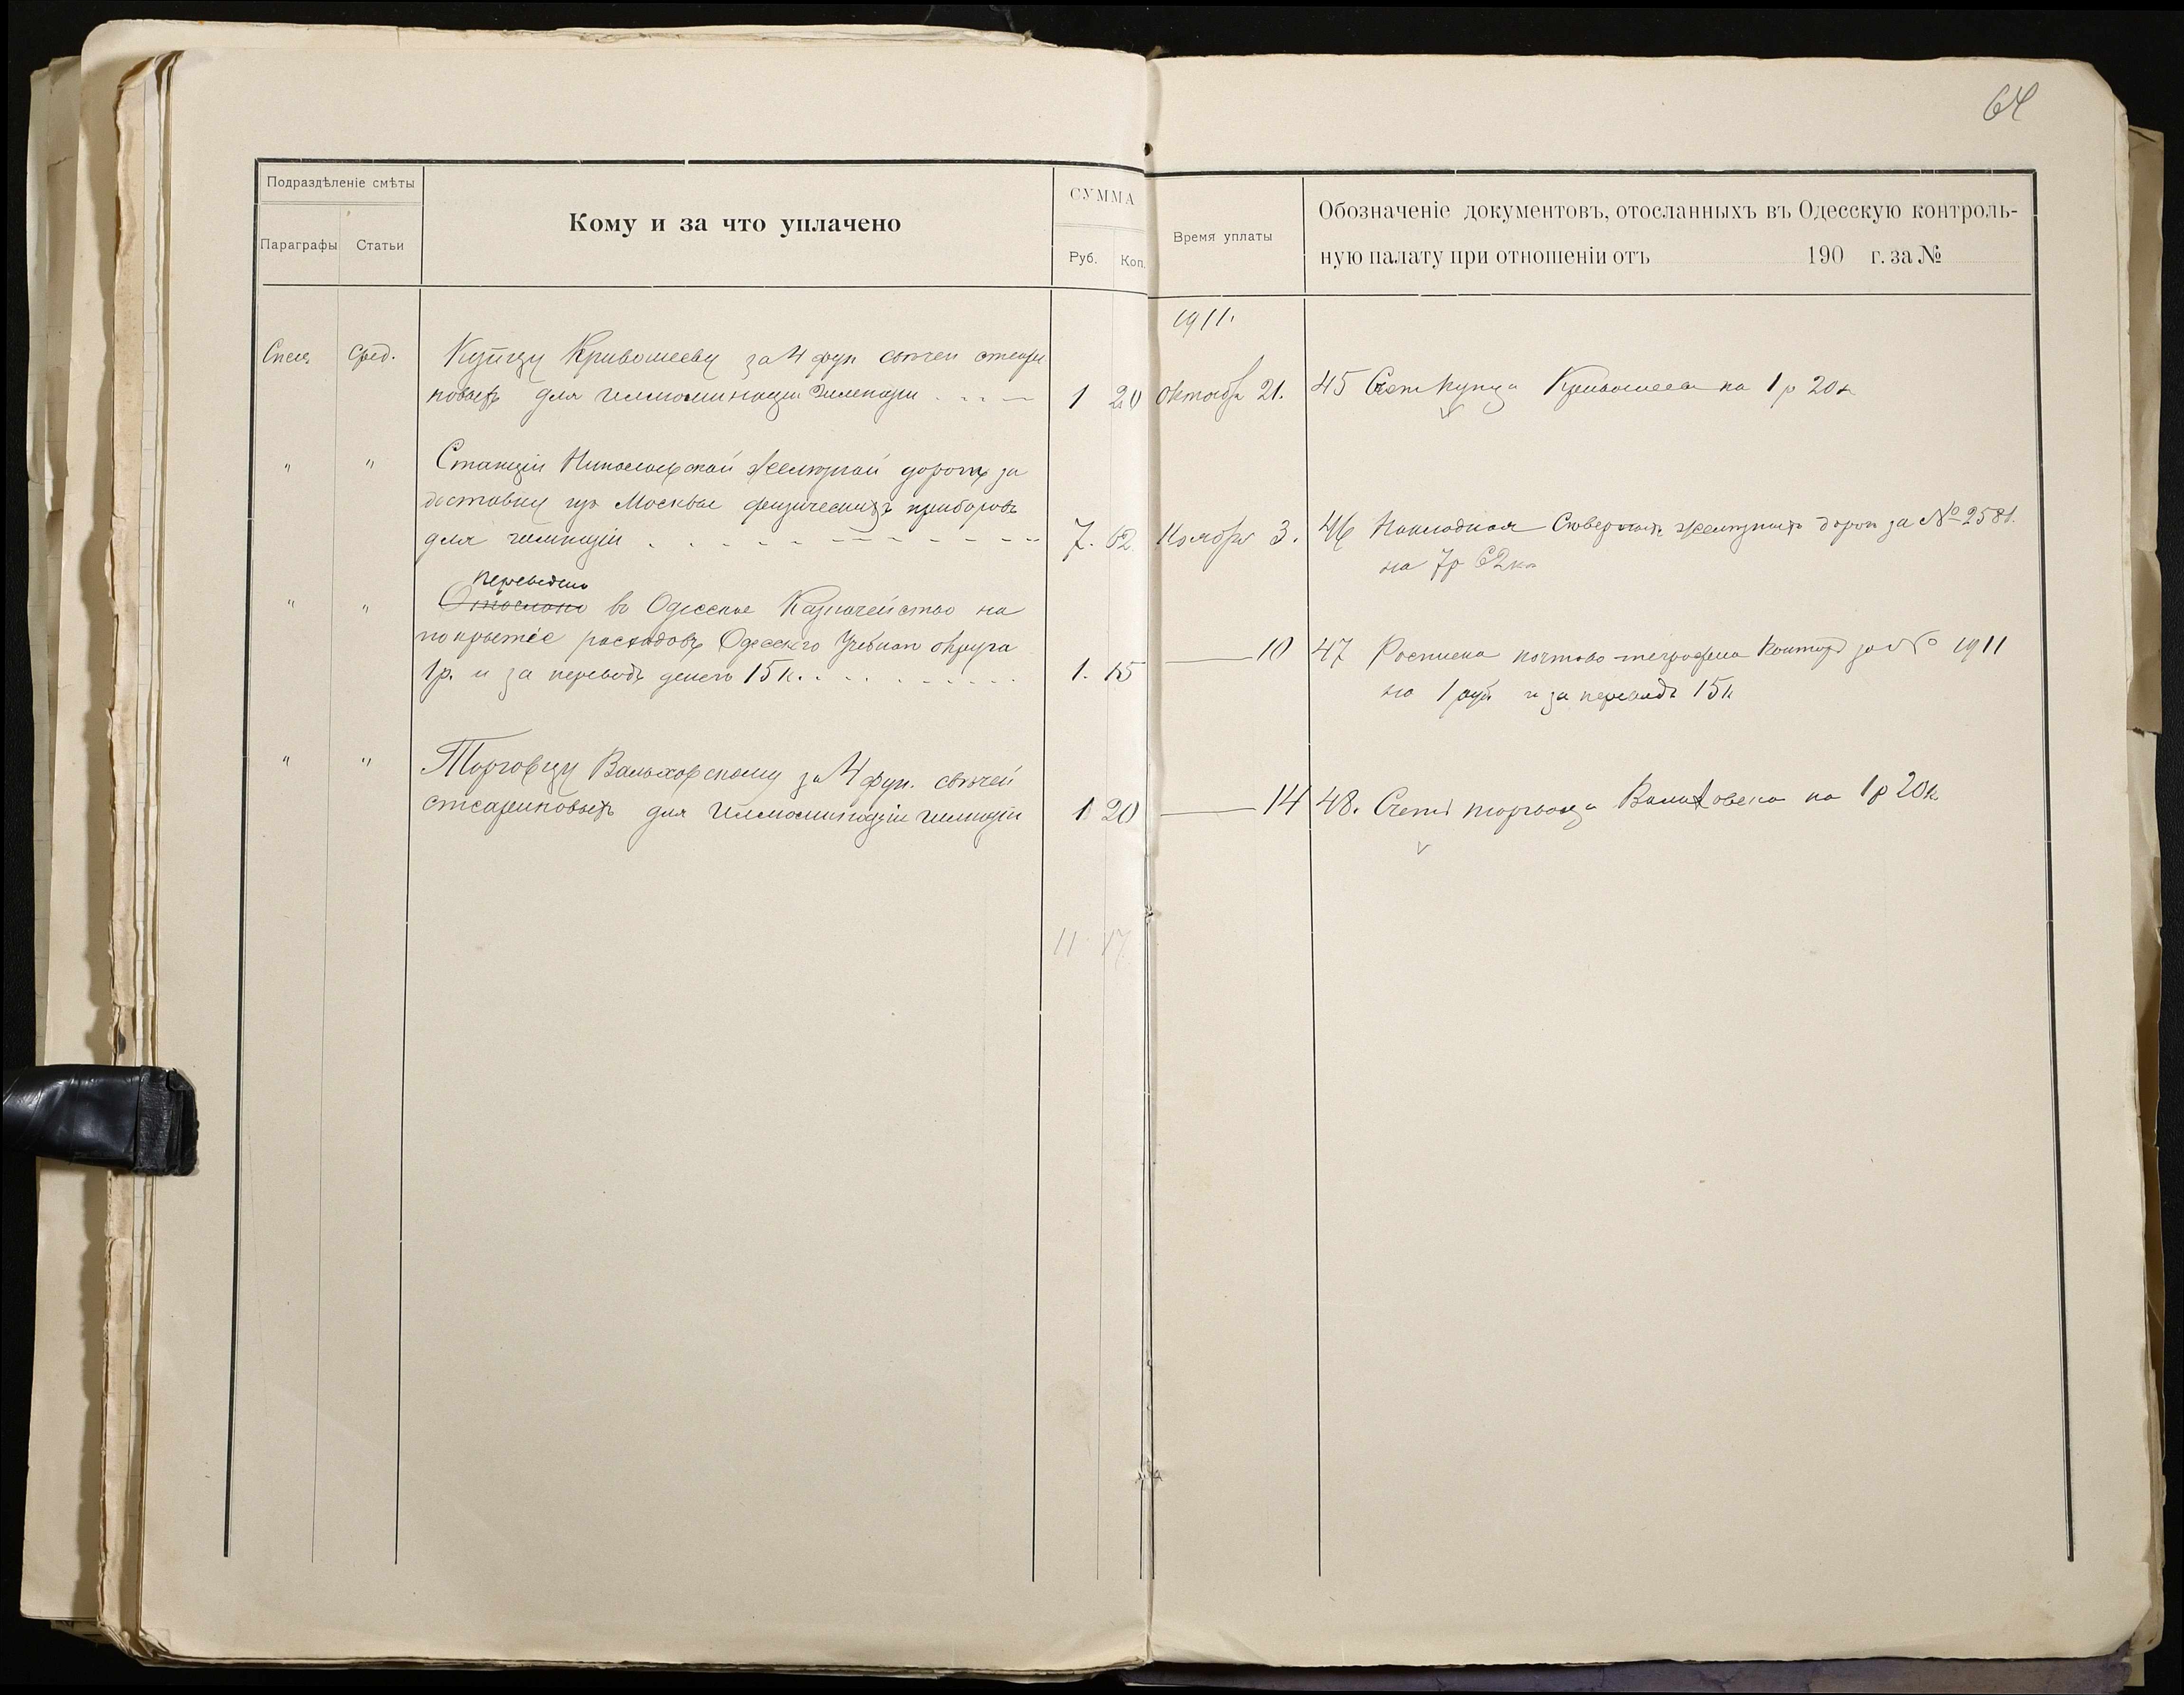 64
Подраздѣленіе смѣты
Параграфы Статьи
Кому и за что уплачено
СУММА
Руб. Коп.
Время уплаты
Обозначеніе документовъ, отосланныхъ въ Одесскую контроль-
ную палату при отношеніи отъ 190 г. за №
1911.
Спец. Сред. Купцу Кривошееву за 4 фун свѣчей стеари
новыхъ для иллюминаціи Гимназіи 1 20 Октября 21. 45 Счет купца Кривошеева на 1 р 20 к
" " Станціи Николаевской желѣзной дороги за
доставку изъ Москвы физическихъ приборовъ
для гимназіи 7. 62 Ноября 3. 46 Накладная Сѣверныхъ желѣзныхъ дорог за № 2581.
на 7р 62 к
переведено
" " Отослано въ Одесское Казначейство на
покрытіе расходовъ Одесскго Учебнаго округа
1р. и за переводъ денегъ 15 к. 1. 15 10 47 Росписка почтово-телеграфной Конторы за № 1911
на 1 руб и за переводъ 15 к
" " Торговцу за 4 фун. свѣчей
стеариновыхъ для иллюминаціи гимназіи 1 20 14 48. Счетъ торговца на 1 р 20 к
11 17